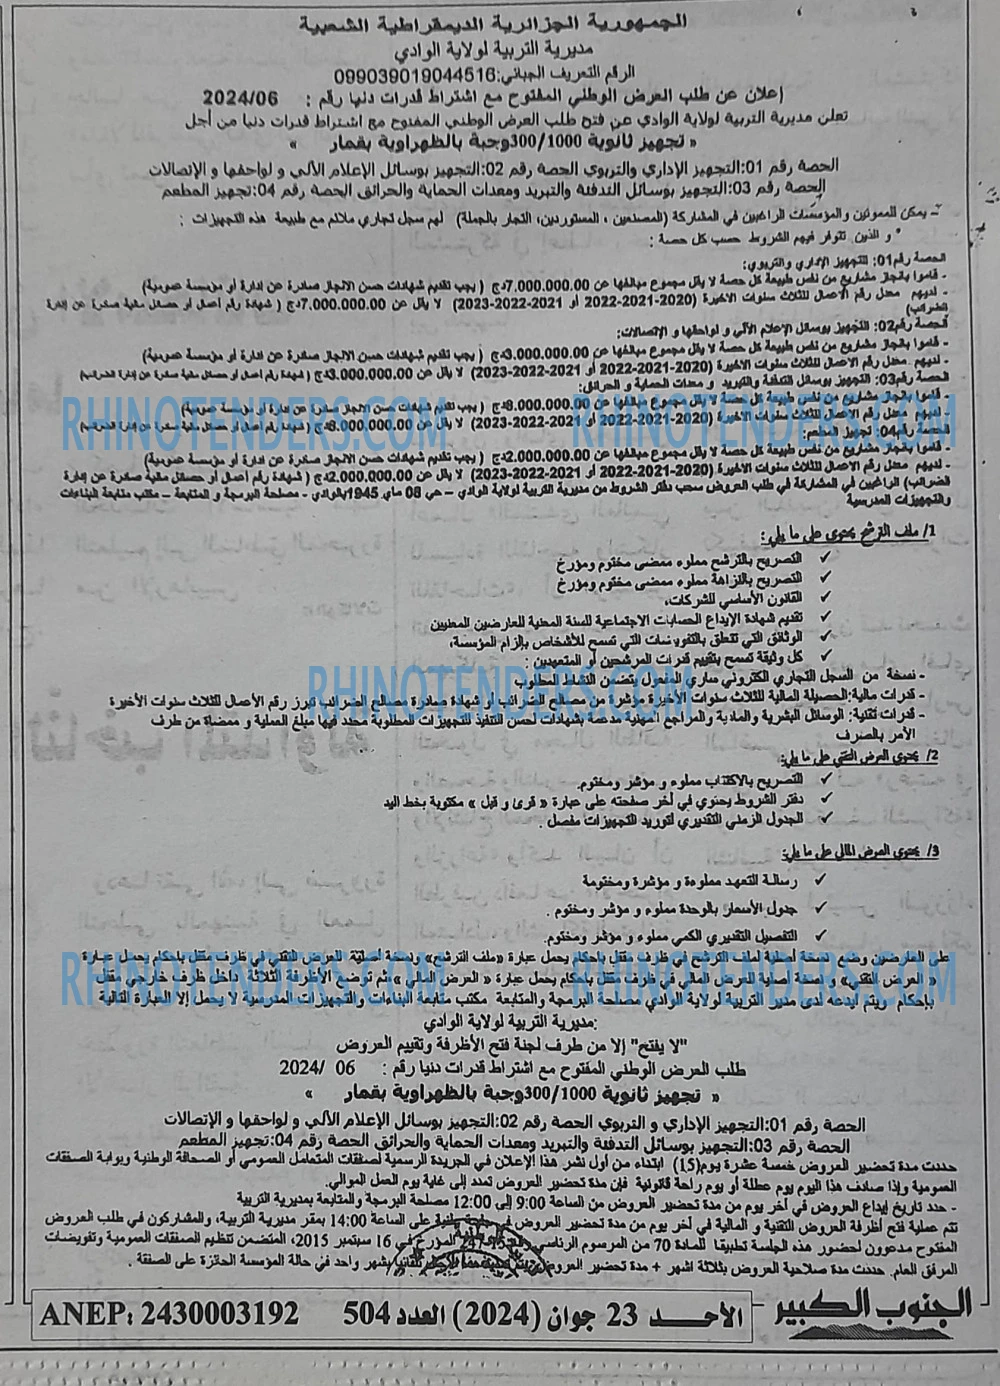 الجمهورية الجزائرية الديمقراطية الشعبية
مديرية التربية لولاية الوادي
الرقم التعريف الجبائي:099039019044516
إعلان عن طلب العرض الوطني المفتوح مع اشتراط قدرات دنيا رقم : 2024/06
تعلن مديرية التربية لولاية الوادي عن فتح طلب العرض الوطني المفتوح مع اشتراط قدرات دنيا من أجل
« تجهيز ثانوية 300/1000وجبة بالظهراوية بقمار »
الحصة رقم 01:التجهيز الإداري والتربوي الحصة رقم 02:التجهيز بوسائل الإعلام الألي و لواحقها و الإتصالات
الحصة رقم 03:التجهيز بوسائل التدفئة والتبريد ومعدات الحماية والحرائق الحصة رقم 04:تجهيز المطعم
- يمكن للممونين والمؤسسات الراغبين في المشاركة (المصنعين ، المستوردين، التجار بالجملة) لهم سجل تجاري ملائم مع طبيعة هذه التجهيزات :
* و الذين تتوفر فيهم الشروط حسب كل حصة :
الحصة رقم01: التجهيز الإداري والتربوي:
- قاموا بانجاز مشاريع من نفس طبيعة كل حصة لا يقل مجموع مبالغها عن 7.000.000.00دج ( يجب تقديم شهادات حسن الانجاز صادرة عن ادارة أو مؤسسة عمومية)
- لديهم معدل رقم الاعمال للثلاث سنوات الاخيرة (2020-2021-2022 أو 2021-2022-2023) لا يقل عن 7.000.000.00دج ( شهادة رقم أعمال أو حصائل مالية صادرة عن إدارة
الضرائب)
الحصة رقم02: التجهيز بوسائل الإعلام الألي و لواحقها و الإتصالات:
- قاموا بانجاز مشاريع من نفس طبيعة كل حصة لا يقل مجموع مبالغها عن 3.000.000.00دج ( يجب تقديم شهادات حسن الانجاز صادرة عن ادارة أو مؤسسة عمومية)
- لديهم معدل رقم الاعمال للثلاث سنوات الاخيرة (2020-2021-2022 أو 2021-2022-2023) لا يقل عن 3.000.000.00دج ( شهادة رقم أعمال أو حصائل مالية صادرة عن إدارة الضرائب)
الحصة رقم03: التجهيز بوسائل التدفئة والتبريد و معدات الحماية و الحرائق:
- قاموا بانجاز مشاريع من نفس طبيعة كل حصة لا يقل مجموع مبالغها عن 8.000.000.00دج ( يجب تقديم شهادات حسن الانجاز صادرة عن ادارة أو مؤسسة عمومية)
- لديهم معدل رقم الاعمال للثلاث سنوات الاخيرة (2020-2021-2022 أو 2021-2022-2023) لا يقل عن 8.000.000.00دج ( شهادة رقم أعمال أو حصائل مالية صادرة عن إدارة الضرائب)
الحصة رقم04: تجهيز المطعم:
RHINOTENDERS.COM RHINOTENDERS.COM
- قاموا بانجاز مشاريع من نفس طبيعة كل حصة لا يقل مجموع مبالغها عن 2.000.000.00دج ( يجب تقديم شهادات حسن الانجاز صادرة عن ادارة أو مؤسسة عمومية)
- لديهم معدل رقم الاعمال للثلاث سنوات الاخيرة (2020-2021-2022 أو 2021-2022-2023) لا يقل عن 2.000.000.00دج ( شهادة رقم أعمال أو حصائل مالية صادرة عن إدارة
الضرائب) الراغبين في المشاركة في طلب العروض سحب دفتر الشروط من مديرية التربية لولاية الوادي – حي 08 ماي 1945بالوادي - مصلحة البرمجة و المتابعة – مكتب متابعة البناءات
والتجهيزات المدرسية
1/ ملف الترشح يحتوي على ما يلي:
✓ التصريح بالترشح مملوء ممضى مختوم ومؤرخ
✓ التصريح بالنزاهة مملوء ممضى مختوم ومؤرخ
✓ القانون الأساسي للشركات،
✓ تقديم شهادة الإيداع الحسابات الاجتماعية للسنة المعنية للعارضين المعنيين
✓ الوثائق التي تتعلق بالتفويضات التي تسمح للأشخاص بإلزام المؤسسة،
✓ كل وثيقة تسمح بتقييم قدرات المرشحين أو المتعهدين :
- نسخة من السجل التجاري الكتروني ساري المفعول يتضمن النشاط المطلوب
RHINOTENDERS.COM
- قدرات مالية:الحصيلة المالية للثلاث سنوات الأخيرة مؤشر من مصالح الضرائب أو شهادة صادرة مصالح الضرائب تبرز رقم الأعمال للثلاث سنوات الأخيرة
- قدرات تقنية: الوسائل البشرية والمادية و المراجع المهنية مدعمة بشهادات لحسن التنفيذ للتجهيزات المطلوبة محدد فيها مبلغ العملية و ممضاة من طرف
الأمر بالصرف
2/ يحتوي العرض التقني على ما يلي:
✓ التصريح بالاكتتاب مملوء و مؤشر ومختوم.
✓ دفتر الشروط يحتوي في أخر صفحته على عبارة « قرئ و قبل » مكتوبة بخط اليد
✓ الجدول الزمني التقديري لتوريد التجهيزات مفصل .
3/ يحتوي العرض المالي على ما يلي:
✓ رسالة التعهد مملوءة و مؤشرة ومختومة
✓ جدول الأسعار بالوحدة مملوء و مؤشر ومختوم .
✓ التفصيل التقديري الكمي مملوء و مؤشر ومختوم.
على العارضين وضع نسخة أصلية لملف الترشح في ظرف مقفل بإحكام يحمل عبارة «ملف الترشح» ونسخة أصلية العرض التقني في ظرف مقفل بإحكام يحمل عبارة
« العرض التقني» و نسخة أصلية العرض المالي في ظرف مقفل بإحكام يحمل عبارة « العرض المالي »،ثم توضع الأظرفة الثلاثة داخل ظرف خارجي مقفل
RHINOTENDERS.COM RHINOTENDERS.COM
بإحكام ويتم ايدعه لدى مدير التربية لولاية الوادي مصلحة البرمجة والمتابعة مكتب متابعة البناءات والتجهيزات المدرسية لا يحمل إلا العبارة التالية
:مديرية التربية لولاية الوادي
"لا يفتح" إلا من طرف لجنة فتح الأظرفة وتقييم العروض
طلب العرض الوطني المفتوح مع اشتراط قدرات دنيا رقم : 06 /2024
« تجهيز ثانوية 300/1000وجبة بالظهراوية بقمار »
الحصة رقم 01:التجهيز الإداري و التربوي الحصة رقم 02:التجهيز بوسائل الإعلام الألي و لواحقها و الإتصالات
الحصة رقم 03:التجهيز بوسائل التدفئة والتبريد ومعدات الحماية والحرائق الحصة رقم 04:تجهيز المطعم
حددت مدة تحضير العروض خمسة عشرة يوم(15) ابتداء من أول نشر هذا الإعلان في الجريدة الرسمية لصفقات المتعامل العمومي أو الصحافة الوطنية وبوابة الصفقات
العمومية وإذا صادف هذا اليوم يوم عطلة أو يوم راحة قانونية فإن مدة تحضير العروض تمدد إلى غاية يوم العمل الموالي.
- حدد تاريخ إيداع العروض في أخر يوم من مدة تحضير العروض من الساعة 9:00 إلى 12:00 مصلحة البرمجة والمتابعة بمديرية التربية
تتم عملية فتح أظرفة العروض التقنية و المالية في أخر يوم من مدة تحضير العروض في جلسة علنية على الساعة 14:00 بمقر مديرية التربية، والمشاركون في طلب العروض
المفتوح مدعوون لحضور هذه الجلسة تطبيقا للمادة 70 من المرسوم الرئاسي 247 المؤرخ في 16 سبتمبر 2015، المتضمن تنظيم الصفقات العمومية وتفويضات
المرفق العام. حددت مدة صلاحية العروض بثلاثة اشهر + مدة تحضير العروض بشهر واحد في حالة المؤسسة الحائزة على الصفقة .
الجنوب الكبير
الأحد 23 جوان (2024) العدد 504 ANEP: 2430003192